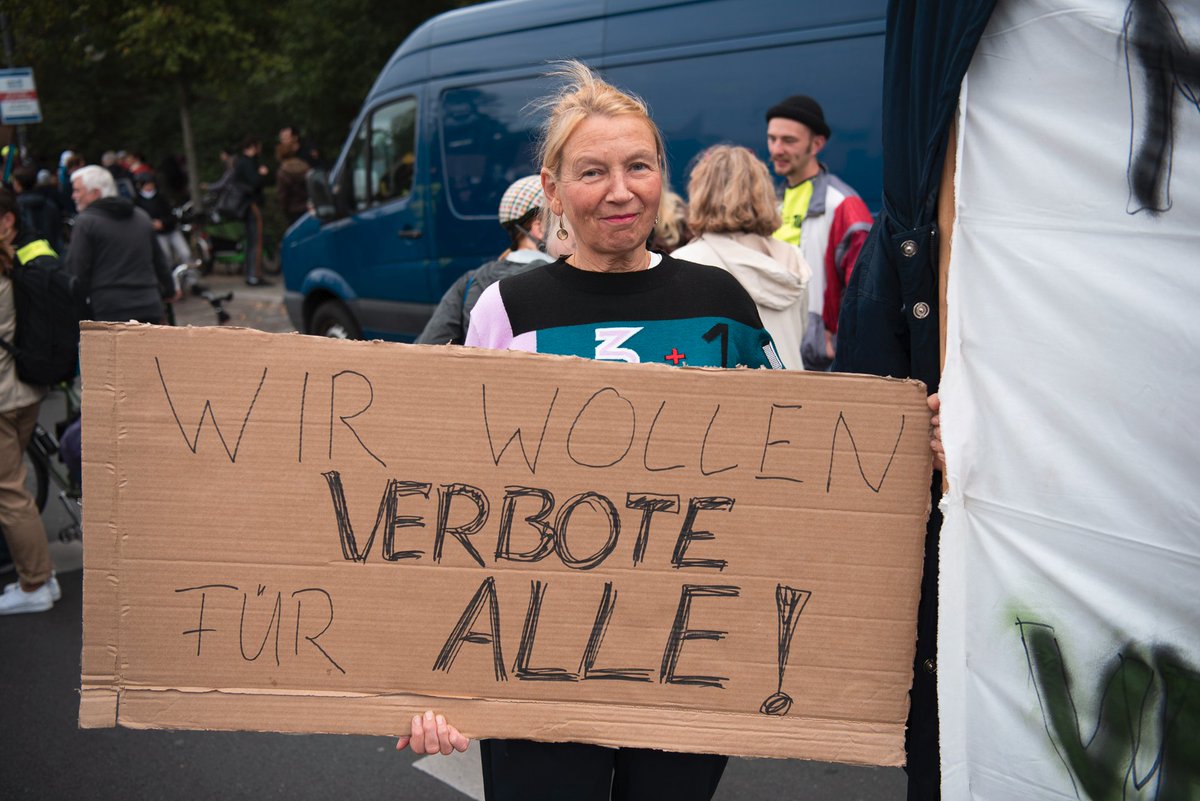 WIR WOLLEN
VERBOTE
FÜR ALLE!
3 + 1